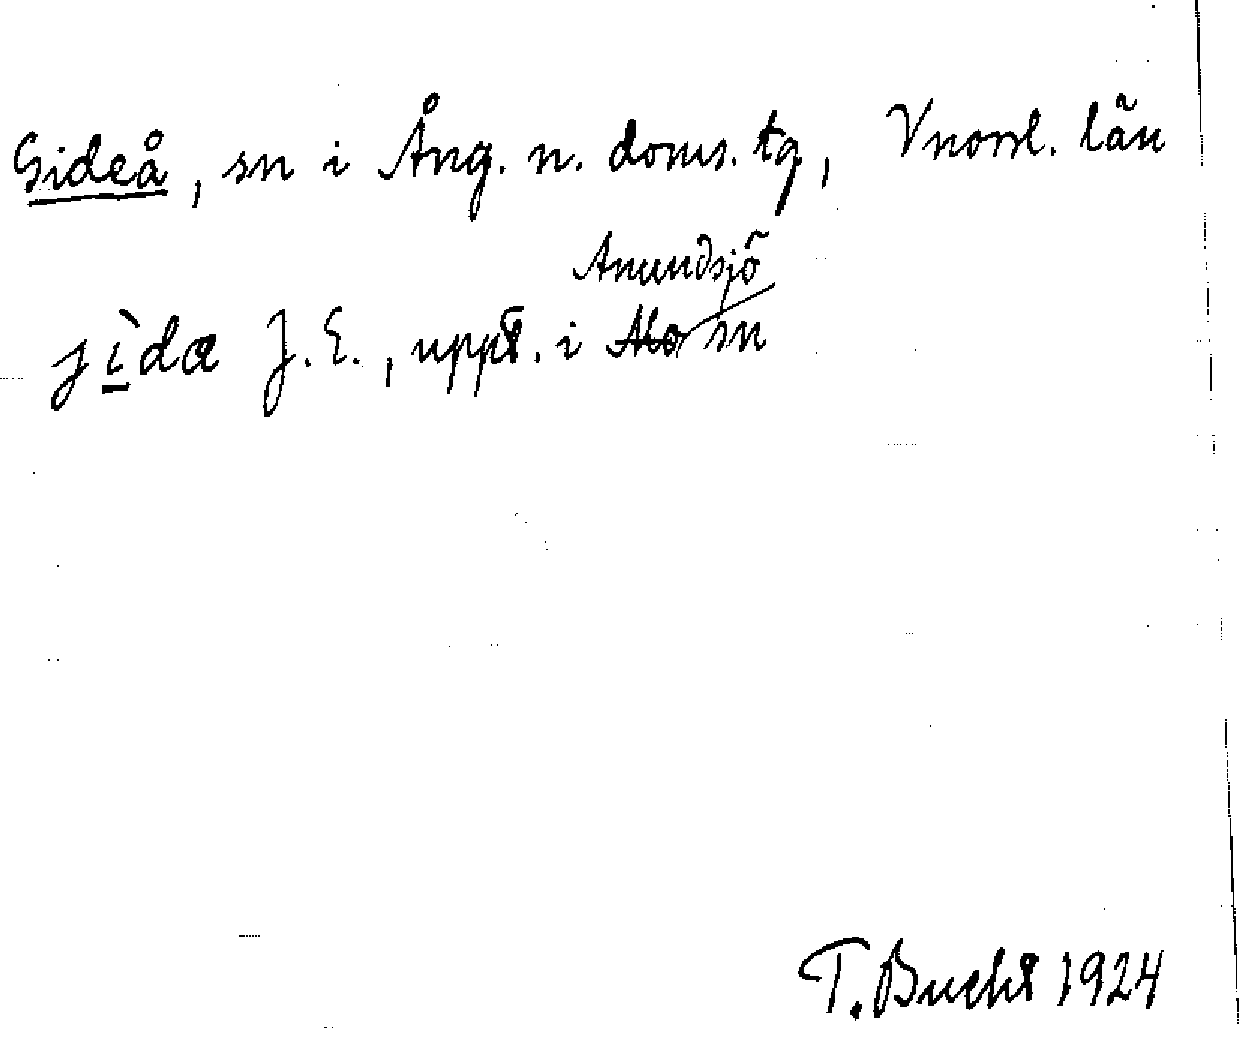 Gideå, sn i Ång. n. doms. tg, Vnorrl. län
Anundsjö
jìda J. E., uppt. i Mo sn
T. Bucht 1924